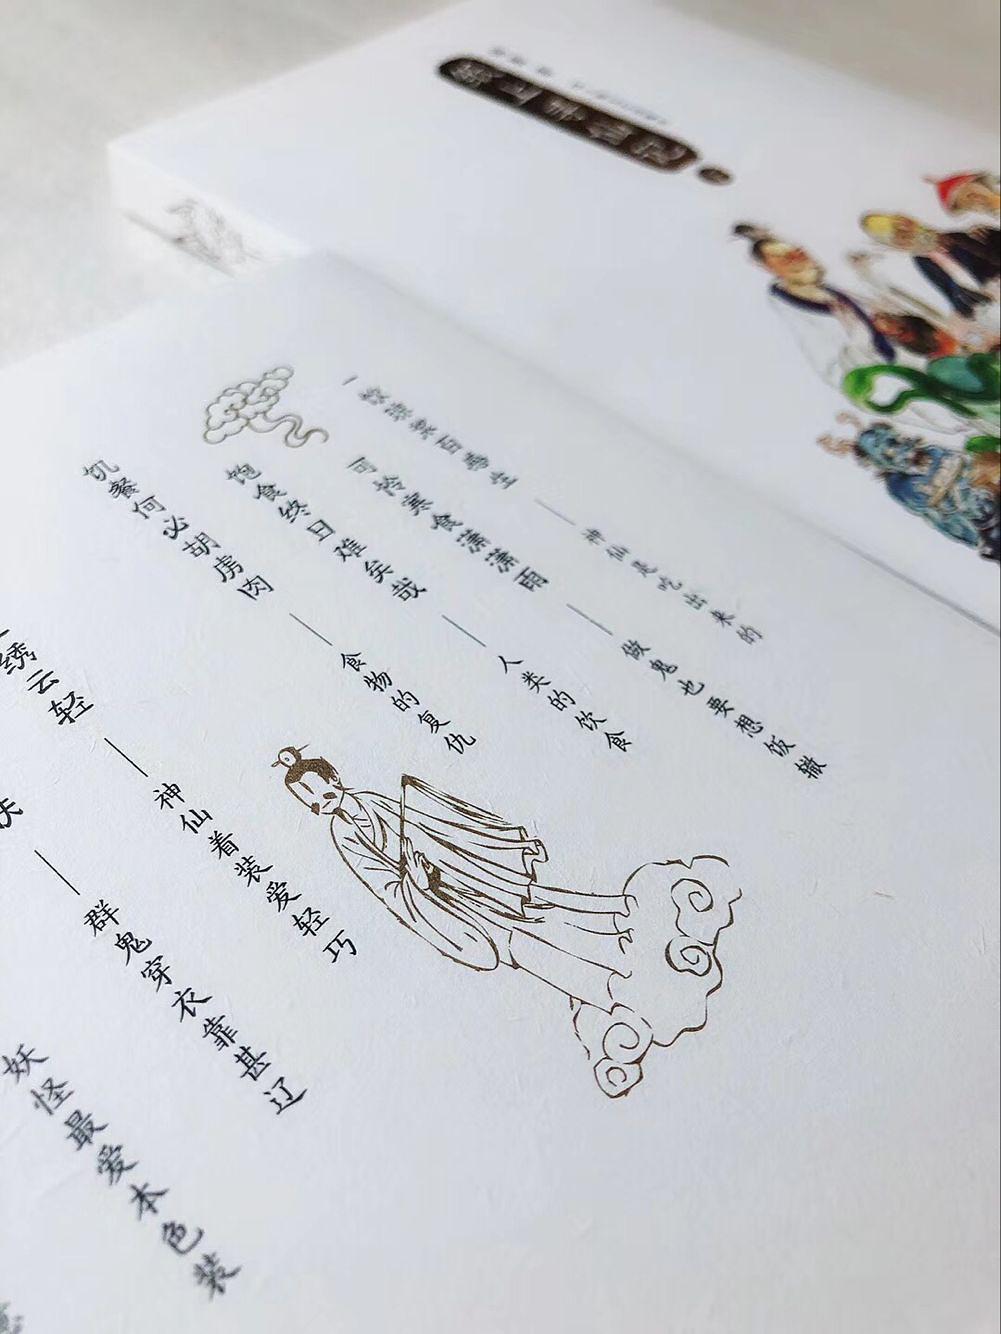 一饮琼浆百感生——神仙是吃出来的
可怜寒食潇潇雨——做鬼也要想饭辙
饱食终日难矣哉——人类的饮食
饥餐何必胡虏肉——食物的复仇
绣云轻——神仙着装爱轻巧
——群鬼穿衣靠甚辽
妖怪最爱本色装